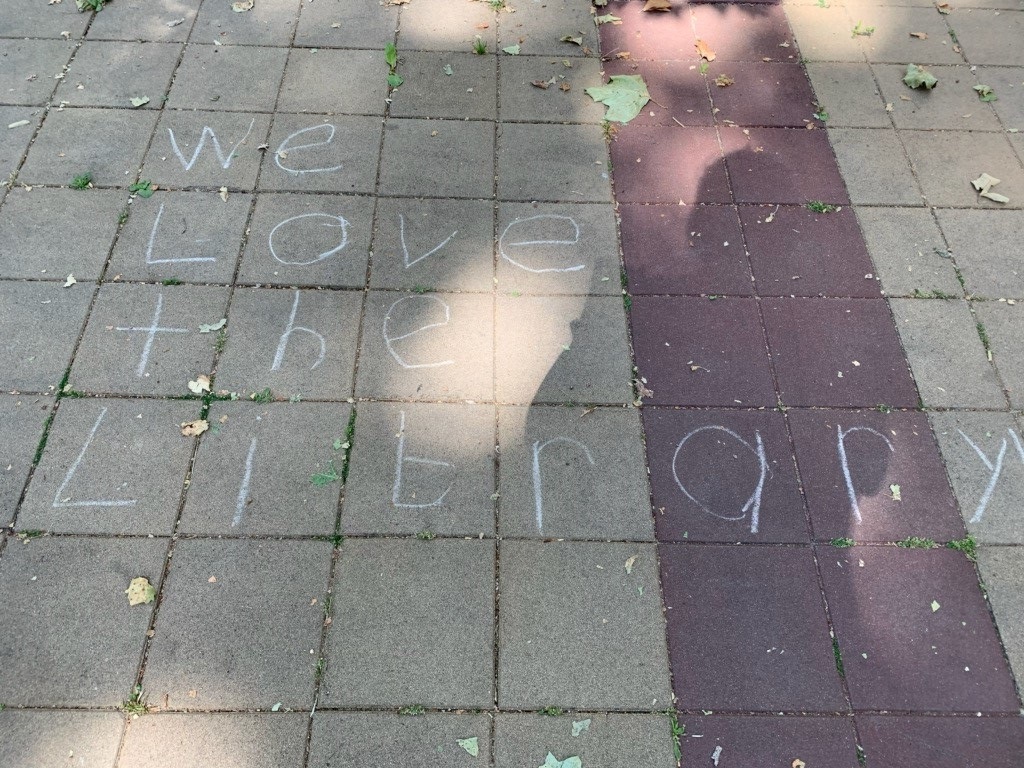 We
Love
the
Library